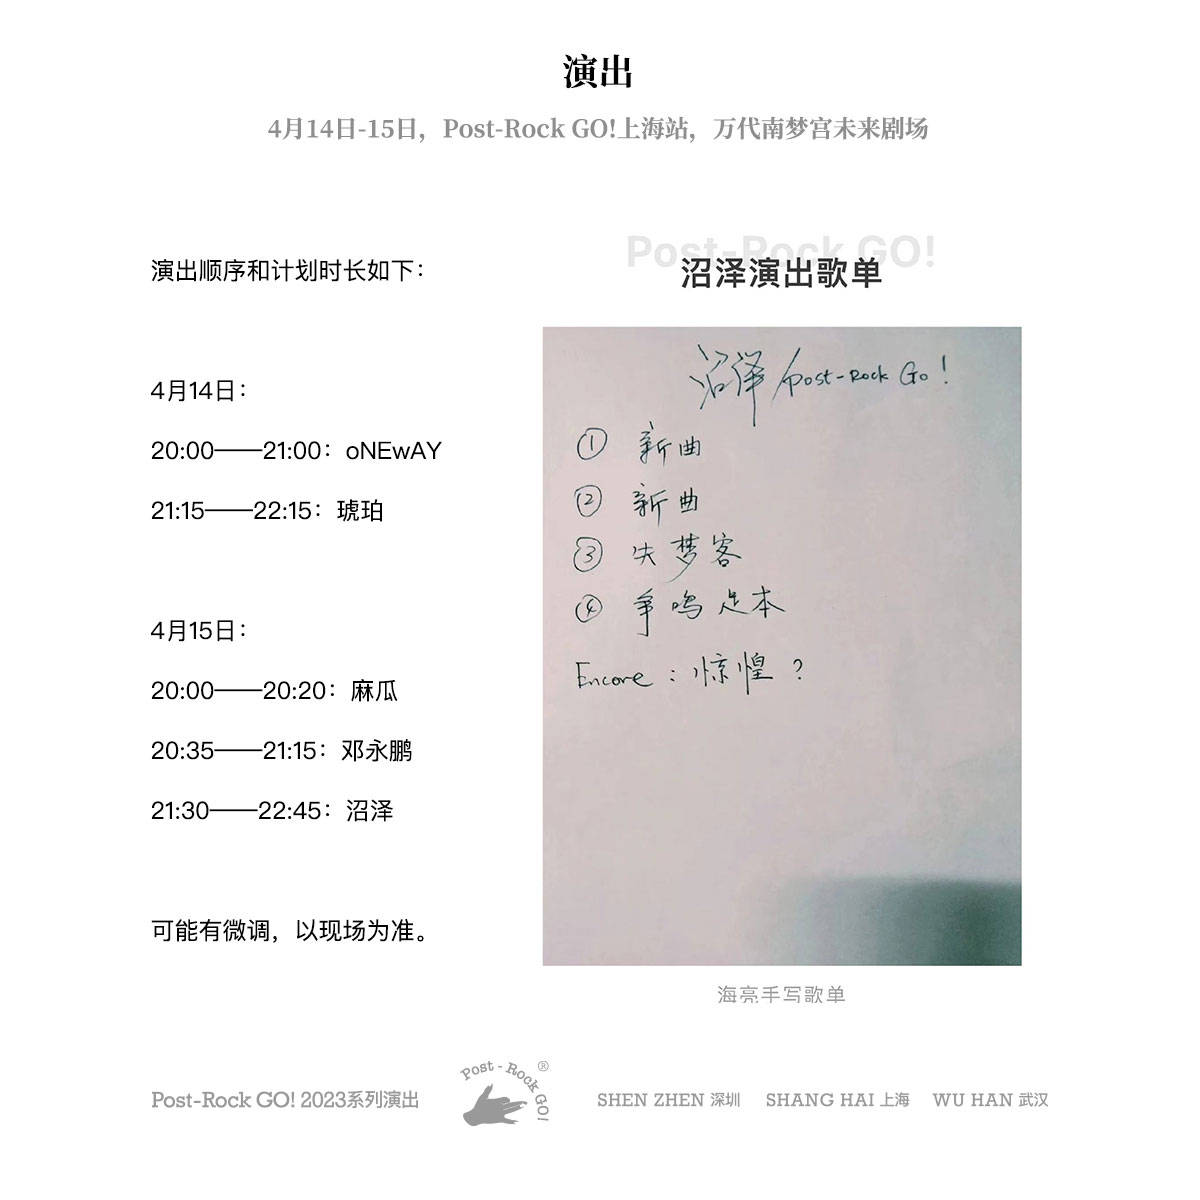 演出
4月14日-15日，Post-Rock GO!上海站，万代南梦宫未来剧场
演出顺序和计划时长如下：
4月14日：
20:00——21:00：oNEwAY
21:15——22:15：琥珀
4月15日：
20:00——20:20：麻瓜
20:35——21:15：邓永鹏
21:30——22:45：沼泽
可能有微调，以现场为准。
Post-Rock GO!
沼泽演出歌单
沼泽/Post-Rock Go!
① 新曲
② 新曲
③ 失梦客
④ 争鸣足本
Encore：惊惶？
海亮手写歌单
Post-Rock GO! 2023系列演出
Post-Rock GO!®
SHEN ZHEN 深圳 SHANG HAI 上海 WU HAN 武汉